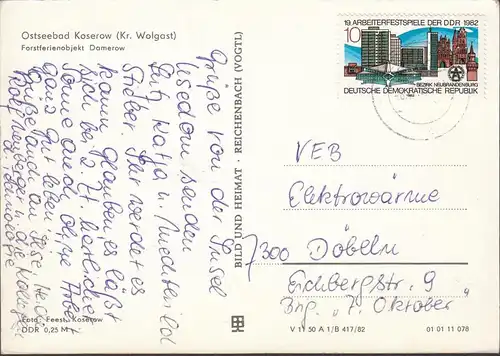 Ostseebad Koserow (Kr. Wolgast)
Forstferienobjekt Damerow
19. ARBEITERFESTSPIELE DER DDR 1982
10
BEZIRK NEUBRANDENBURG
DEUTSCHE DEMOKRATISCHE REPUBLIK
1982
Grüße von der Insel
Usedom senden
Kati, Katja u.
Ihr werdet es
kaum glauben es läßt
sich bei z. Zt. herrlicher
Sonne auch ohne Arbeit
ganz gut leben!
Grüße auch an Ilse, Heidi,
u. die Kollegen
d.
BILD UND HEIMAT · REICHENBACH (VOGTL)
VEB
Elektrowärme
7300 Döbeln
Eichbergstr. 9
Brig. "7. Oktober"
Foto: Feest, Koserow
DDR 0,25 M
V 11 50 A 1/B 417/82
01 01 11 078